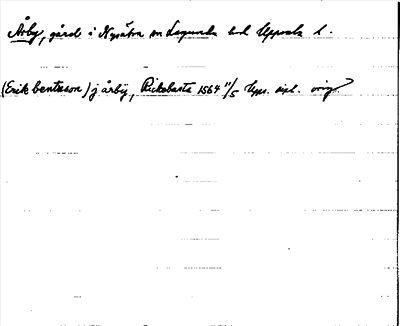 Årby, gård i Nysätra sn Lagunda hd Uppsala l.
(Erik bentsson) j årbij, Räkebasta 1564 11/5 Ups. orig.